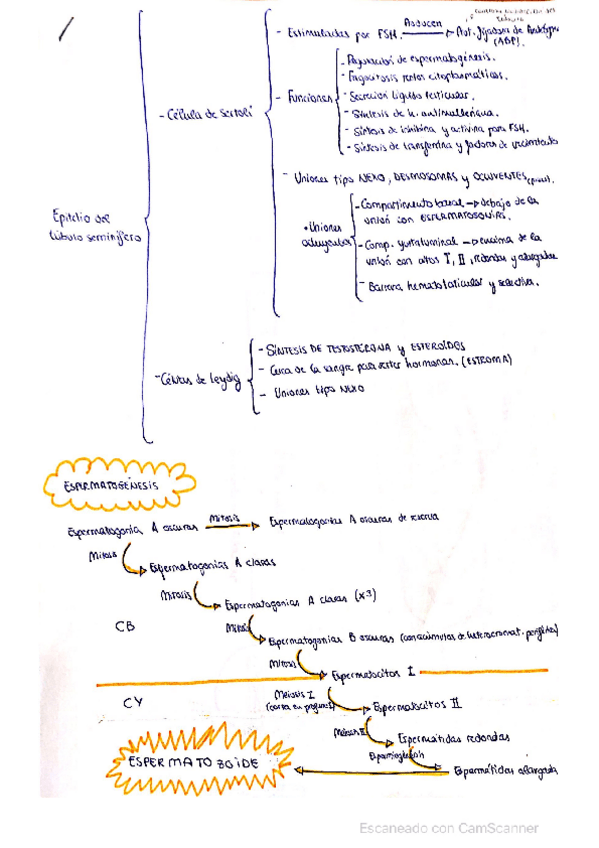 - Estimuladas por FSH. Producen → Prot. fijadora de andróg. (ABP).
- Célula de Sertoli
- Funciones
- Regulación de espermatogénesis.
- Fagocitosis restos citoplasmáticos.
- Secreción líquido testicular.
- Síntesis de h. antimulleriana.
- Síntesis de inhibina y activina para FSH.
- Síntesis de transferrina y factores de crecimiento
- Uniones tipo NEXO, DESMOSOMAS y OCLUYENTES
Epitelio del
túbulo seminífero
• Uniones
- Compartimento basal → debajo de la
unión con ESPERMATOGONIAS.
- Comp. yuxtaluminal → encima de la
unión con citos I, II, redondas y alargadas
- Barrera hematotesticular y selectiva.
- Células de Leydig
- SÍNTESIS DE TESTOSTERONA y ESTEROIDES
- Cerca de la sangre para verter hormonas. (ESTROMA)
- Uniones tipo NEXO
ESPERMATOGÉNESIS
Espermatogonia A oscuras Mitosis Espermatogonias A oscuras de reserva
Mitosis
Espermatogonias A claras
Mitosis
Espermatogonias A claras (x3)
CB
Mitosis
Espermatogonias B oscuras (con acúmulos de heterocromat. periférica)
Mitosis
Espermatocitos I
CY
Meiosis I
Espermatocitos II
Meiosis II
Espermátidas redondas
Espermátidas alargadas
ESPERMATOZOIDE
Escaneado con CamScanner